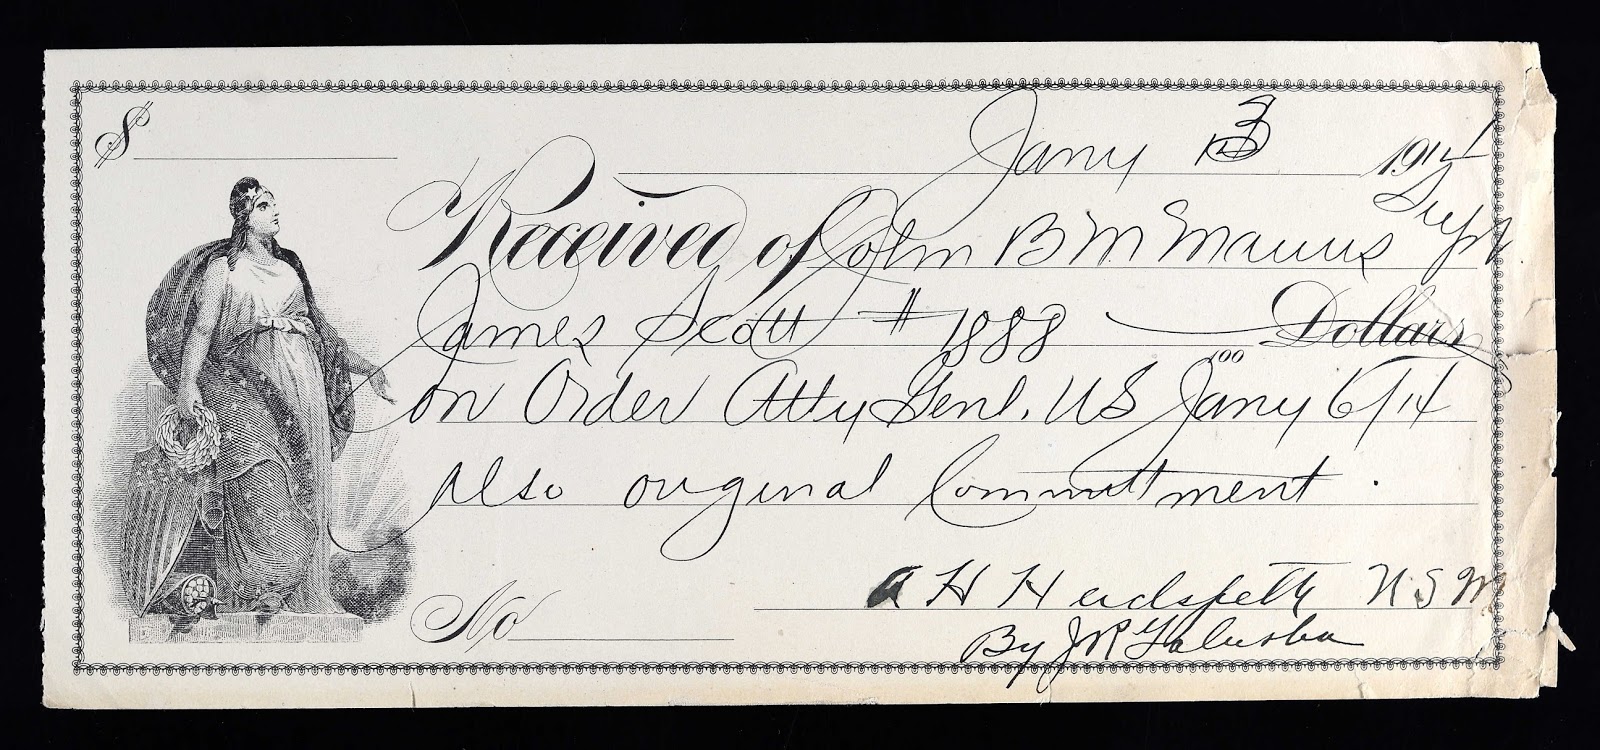 $
Jany 13 1914
Received of John B M Manus Supt
James Scott # 1888 Dollars
100
on Order Atty Genl. US Jany 6/14
Also original Committment.
A H Hudspeth U S M
No
By J R Galusha